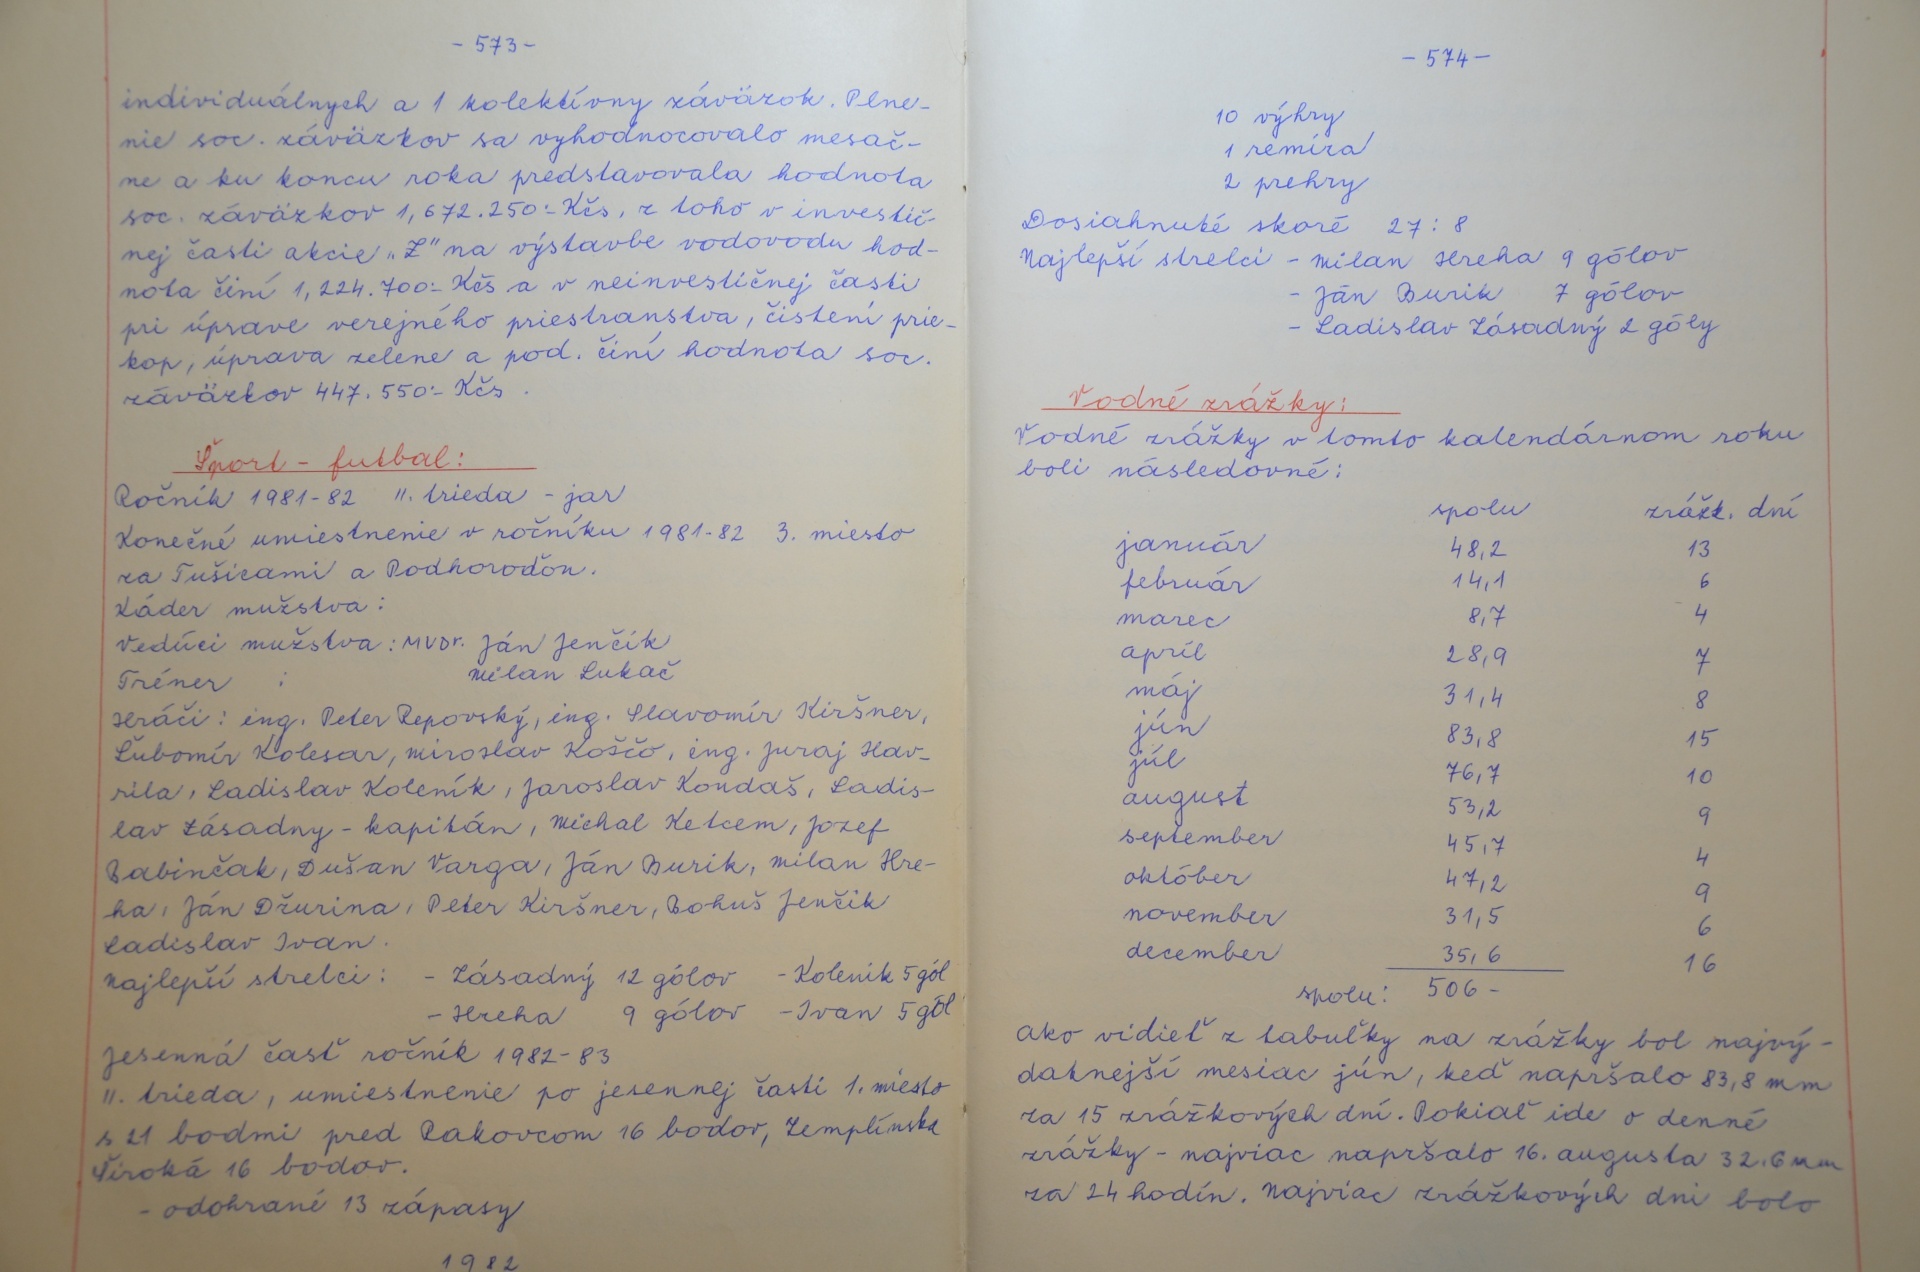 - 573 -
individuálnych a 1 kolektívny záväzok. Plne-
nie soc. záväzkov sa vyhodnocovalo mesač-
ne a ku koncu roka predstavovala hodnota
soc. záväzkov 1,672.250.- Kčs, z toho v investič-
nej časti akcie „Z" na výstavbe vodovodu hod-
nota činí 1,224.700.- Kčs a v neinvestičnej časti
pri úprave verejného priestranstva, čistení prie-
kop, úprava zelene a pod. činí hodnota soc.
záväzkov 447.550.- Kčs.
Šport - futbal:
Ročník 1981-82 II. trieda - jar
Konečné umiestnenie v ročníku 1981-82 3. miesto
za Tušicami a Podhoroďon.
Káder mužstva:
Vedúci mužstva: MVDr. Ján Jenčík
Tréner : Milan Lukač
Hráči: ing. Peter Repovský, ing. Slavomír Kiršner,
Ľubomír Kolesar, Miroslav Koščo, ing. Juraj Hav-
rila, Ladislav Koleník, Jaroslav Kondaš, Ladis-
lav Zásadny - kapitán, Michal Ketcem, Jozef
Babinčak, Dušan Varga, Ján Burik, Milan Hre-
ha, Ján Džurina, Peter Kiršner, Bohuš Jenčik
Ladislav Ivan.
Najlepší strelci: - Zásadný 12 gólov - Koleník 5 gól
- Hreha 9 gólov - Ivan 5 gól
Jesenná časť ročník 1982-83
II. trieda, umiestnenie po jesennej časti 1. miesto
s 21 bodmi pred Rakovcom 16 bodov, Zemplínska
Široká 16 bodov.
- odohrané 13 zápasy
1982
- 574 -
10 výhry
1 remíza
2 prehry
Dosiahnuté skoré 27:8
Najlepší strelci - Milan Hreha 9 gólov
- Ján Burik 7 gólov
- Ladislav Zásadný 2 góly
Vodné zrážky:
Vodné zrážky v tomto kalendárnom roku
boli následovné:
spolu zrážk. dní
január 48,2 13
február 14,1 6
marec 8,7 4
apríl 28,9 7
máj 31,4 8
jún 83,8 15
júl 76,7 10
august 53,2 9
september 45,7 4
október 47,2 9
november 31,5 6
december 35,6 16
spolu: 506 -
Ako vidieť z tabuľky na zrážky bol najvý-
datnejší mesiac jún, keď napršalo 83,8 mm
za 15 zrážkových dní. Pokiaľ ide o denné
zrážky - najviac napršalo 16. augusta 32.6 mm
za 24 hodín. Najviac zrážkových dni bolo